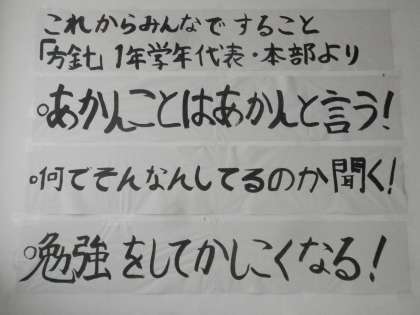 これからみんなですること
「方針」1年学年代表・本部より
○あかんことはあかんと言う!
○何でそんなんしてるのか聞く!
○勉強をしてかしこくなる!